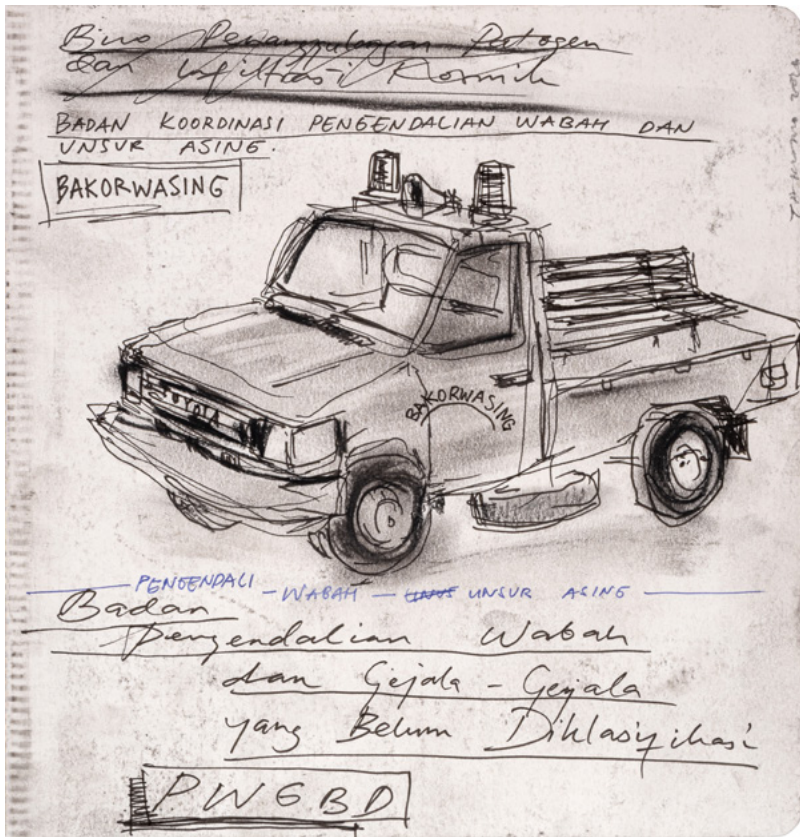 Biro Penanggulangan Patogen
dan Infiltrasi Kosmik
BADAN KOORDINASI PENGENDALIAN WABAH DAN
UNSUR ASING.
BAKORWASING
TOYOLA
BAKORWASING
PENGENDALI - WABAH - UNSUR ASING
Badan
Pengendalian Wabah
dan Gejala - Gejala
yang Belum Diklasifikasi
PWGBD